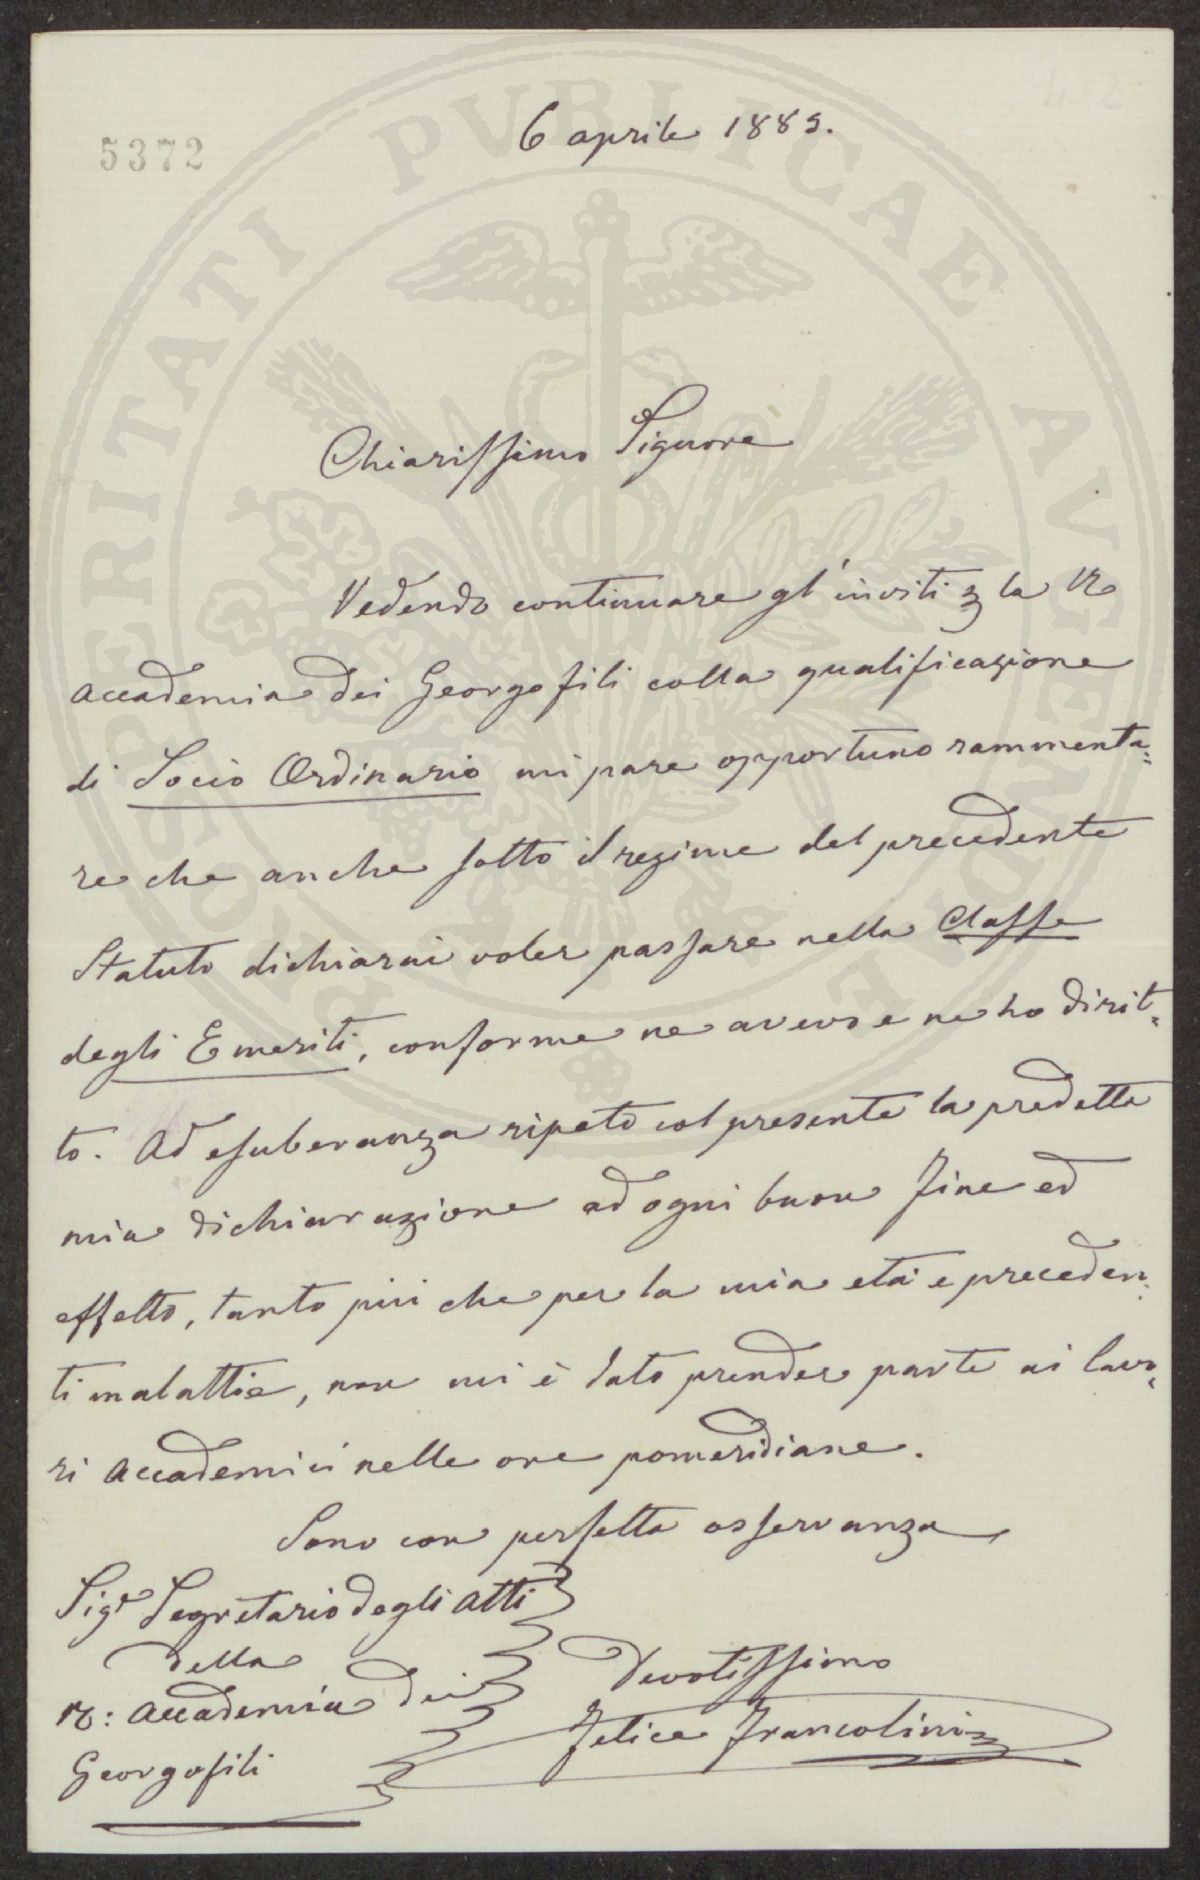 5372
6 aprile 1885.
Chiarissimo Signore
Vedendo continuare gl'inviti la R
Accademia dei Georgofili colla qualificazione
di Socio Ordinario mi pare opportuno rammenta=
re che anche sotto il regime del precedente
Statuto dichiarai voler passare nella Classe
degli Emeriti, conforme ne avevo e ne ho dirit=
to. Ad esuberanza ripeto col presente la predetta
mia dichiarazione ad ogni buon fine ed
effetto, tanto più che per la mia età e preceden=
ti malattie, non mi è dato prender parte ai lavo=
ri Accademici nelle ore pomeridiane.
Sono con perfetta osservanza
Sigr Segretario degli Atti
della
R: Accademia dei
Georgofili
Devotissimo
Felice Francolini
PROSPERITATI PVBLICAE AVGENDAE